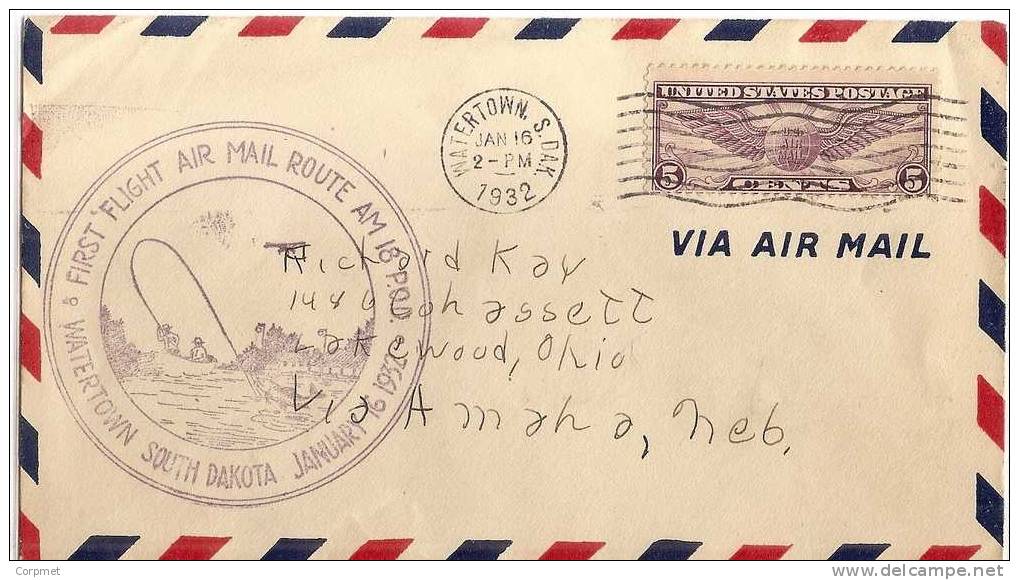 UNITED STATES POSTAGE
U.S.
AIR
MAIL
5 CENTS 5
WATERTOWN, S. DAK.
JAN 16
2-PM
1932
VIA AIR MAIL
FIRST FLIGHT AIR MAIL ROUTE AM 18 P.O.D.
WATERTOWN SOUTH DAKOTA JANUARY 16 1932
Richard Kay
1486 Cohassett
Lakewood, Ohio
Via Amaha, Neb.
© Corpmet
delcampe.net